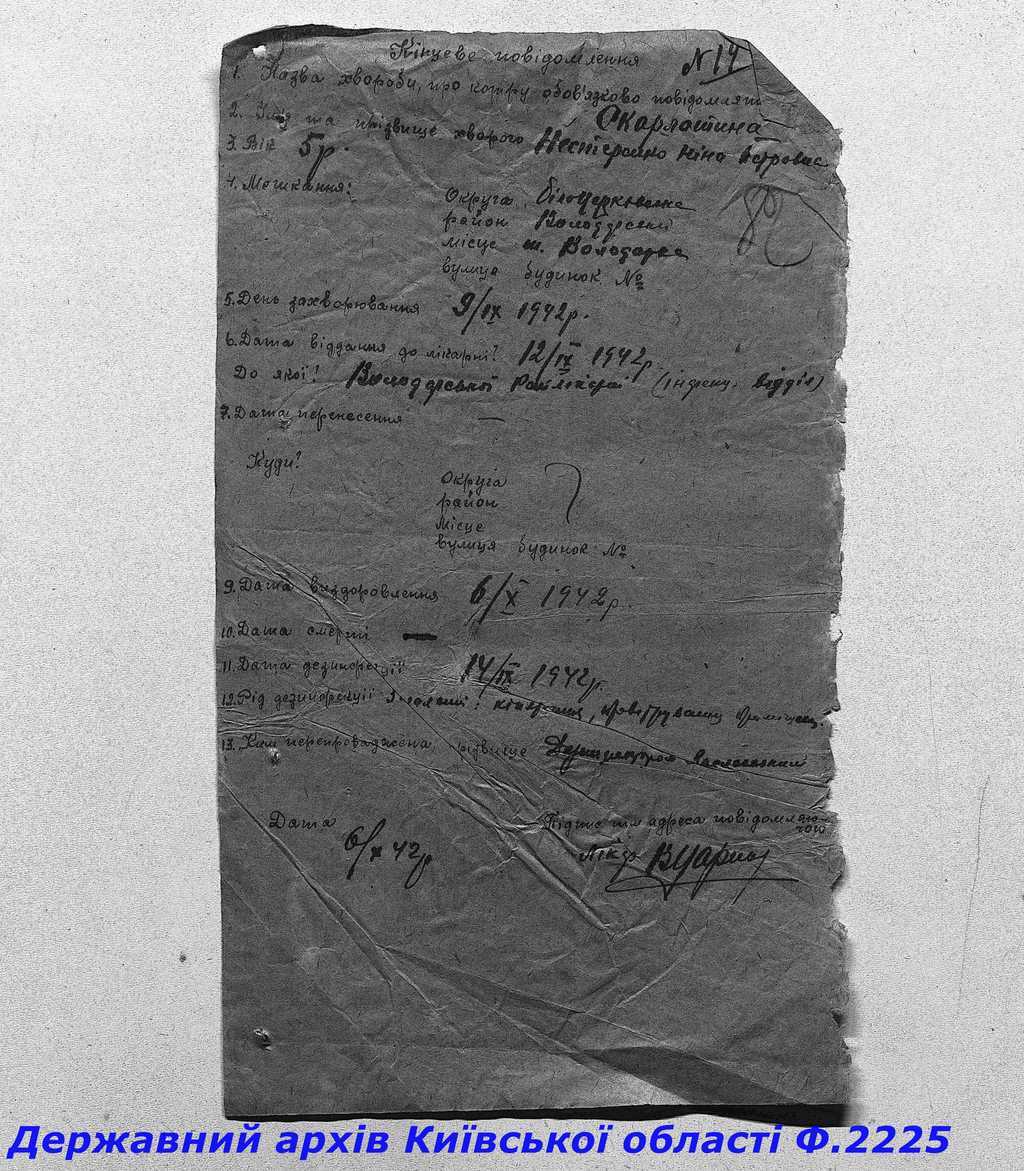 Кінцеве повідомлення №14
1. Назва хвороби, про котру обов'язково повідомляти
Скарлатина
2. Ім'я та прізвище хворого Нестеренко Ніна Петровна
3. Вік 5 р.
4. Мешкання:
Округа Білоцерківська
район Володарський
місце м. Володарка
вулиця будинок №
82
5. День захворювання 9/IX 1942 р.
6. Дата віддання до лікарні? 12/IX 1942 р.
До якої? Володарської (інфекц. відділ)
7. Дата перенесення —
Куди?
Округа
район
місце
вулиця будинок №
9. Дата виздоровлення 6/X 1942 р.
10. Дата смерті —
11. Дата дезинфекції 14/IX 1942 р.
12. Рід дезинфекції
13. Ким перепроваджена, прізвище Дезинфектором
Дата
6/X 42 р
Підпис та адреса повідомляю-
чого
Лікар
Державний архів Київської області Ф.2225